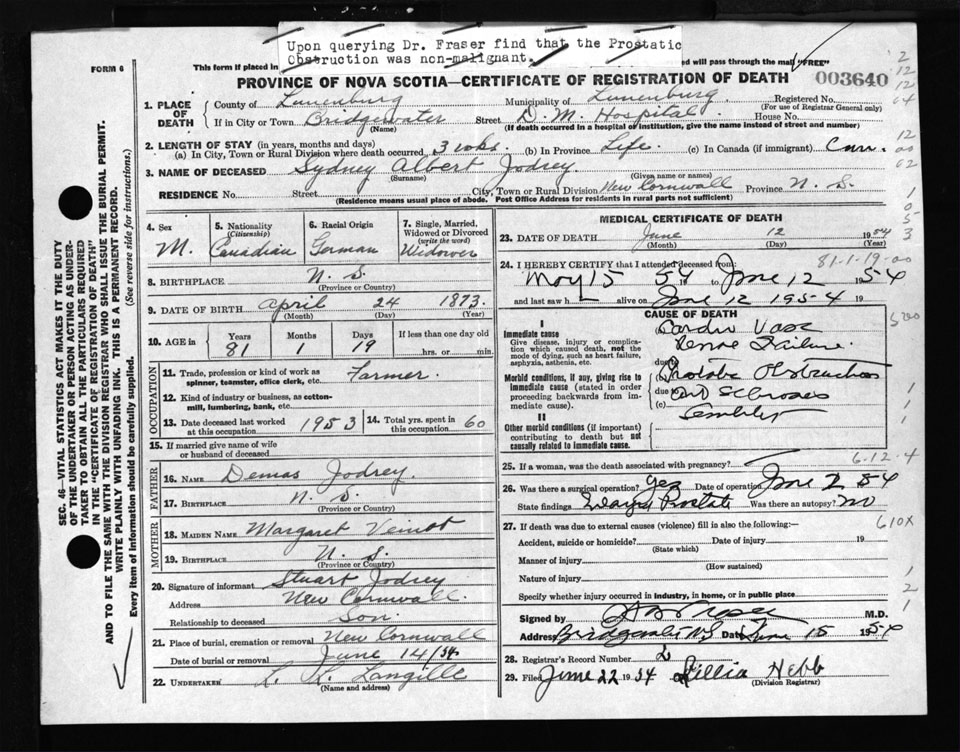 Upon querying Dr. Fraser find that the Prostatic
Obstruction was non-malignant.
FORM 6
This form if placed in
ed will pass through the mail "FREE"
PROVINCE OF NOVA SCOTIA—CERTIFICATE OF REGISTRATION OF DEATH
003640
1. PLACE OF DEATH
County of Lunenburg Municipality of Lunenburg Registered No.
(For use of Registrar General only)
If in City or Town Bridgewater Street D. M. Hospital House No.
(Name) (If death occurred in a hospital or institution, give the name instead of street and number)
2. LENGTH OF STAY (in years, months and days)
(a) In City, Town or Rural Division where death occurred 3 wks. (b) In Province Life. (c) In Canada (if immigrant)
3. NAME OF DECEASED Sydney Albert Jodrey
(Surname) (Given name or names)
RESIDENCE No. Street City, Town or Rural Division New Cornwall Province N. S.
(Residence means usual place of abode. Post Office Address for residents in rural parts not sufficient)
SEC. 46—VITAL STATISTICS ACT MAKES IT THE DUTY
OF THE UNDERTAKER OR PERSON ACTING AS UNDER-
TAKER TO OBTAIN ALL THE PARTICULARS REQUIRED
IN THE "CERTIFICATE OF REGISTRATION OF DEATH"
AND TO FILE THE SAME WITH THE DIVISION REGISTRAR WHO SHALL ISSUE THE BURIAL PERMIT.
WRITE PLAINLY WITH UNFADING INK. THIS IS A PERMANENT RECORD.
Every item of information should be carefully supplied. (See reverse side for instructions.)
4. Sex
M.
5. Nationality
(Citizenship)
Canadian
6. Racial Origin
German
7. Single, Married,
Widowed or Divorced
(write the word)
Widower
8. BIRTHPLACE N. S.
(Province or Country)
9. DATE OF BIRTH April 24 1873.
(Month) (Day) (Year)
10. AGE in Years Months Days If less than one day old
81 1 19 hrs. or min.
OCCUPATION
11. Trade, profession or kind of work as
spinner, teamster, office clerk, etc. Farmer.
12. Kind of industry or business, as cotton-
mill, lumbering, bank, etc.
13. Date deceased last worked
at this occupation 1953
14. Total yrs. spent in
this occupation 60
15. If married give name of wife
or husband of deceased
FATHER
16. NAME Demas Jodrey.
17. BIRTHPLACE N. S.
(Province or Country)
MOTHER
18. MAIDEN NAME Margaret Veinot
19. BIRTHPLACE N. S.
(Province or Country)
20. Signature of informant Stuart Jodrey
Address New Cornwall.
Relationship to deceased Son.
21. Place of burial, cremation or removal New Cornwall
Date of burial or removal June 14/54.
22. UNDERTAKER Langille
(Name and address)
MEDICAL CERTIFICATE OF DEATH
23. DATE OF DEATH June 12 1954
(Month) (Day) (Year)
81-1-19-00
24. I HEREBY CERTIFY that I attended deceased from:
May 15 54 to June 12 1954
and last saw h alive on June 12 1954 19
CAUSE OF DEATH
I
Immediate cause
Give disease, injury or complica-
tion which caused death, not the
mode of dying, such as heart failure,
asphyxia, asthenia, etc.
Morbid conditions, if any, giving rise to
immediate cause (stated in order
proceeding backwards from im-
mediate cause).
II
Other morbid conditions (if important)
contributing to death but not
causally related to immediate cause.
Cardio Vasc
Renal Failure.
due to
(b) Prostatic Obstruction
due to
Art Sclerosis
Senility
25. If a woman, was the death associated with pregnancy?
6-12-4
26. Was there a surgical operation? yes Date of operation June 2 54
State findings Prostate Was there an autopsy? no
27. If death was due to external causes (violence) fill in also the following:—
610X
Accident, suicide or homicide? Date of injury 19
(State which)
Manner of injury
(How sustained)
Nature of injury
Specify whether injury occurred in industry, in home, or in public place
Signed by Fraser M.D.
Address Bridgewater NS Date June 15 1954
28. Registrar's Record Number 2
29. Filed June 22 1954 Lillia Hebb
(Division Registrar)